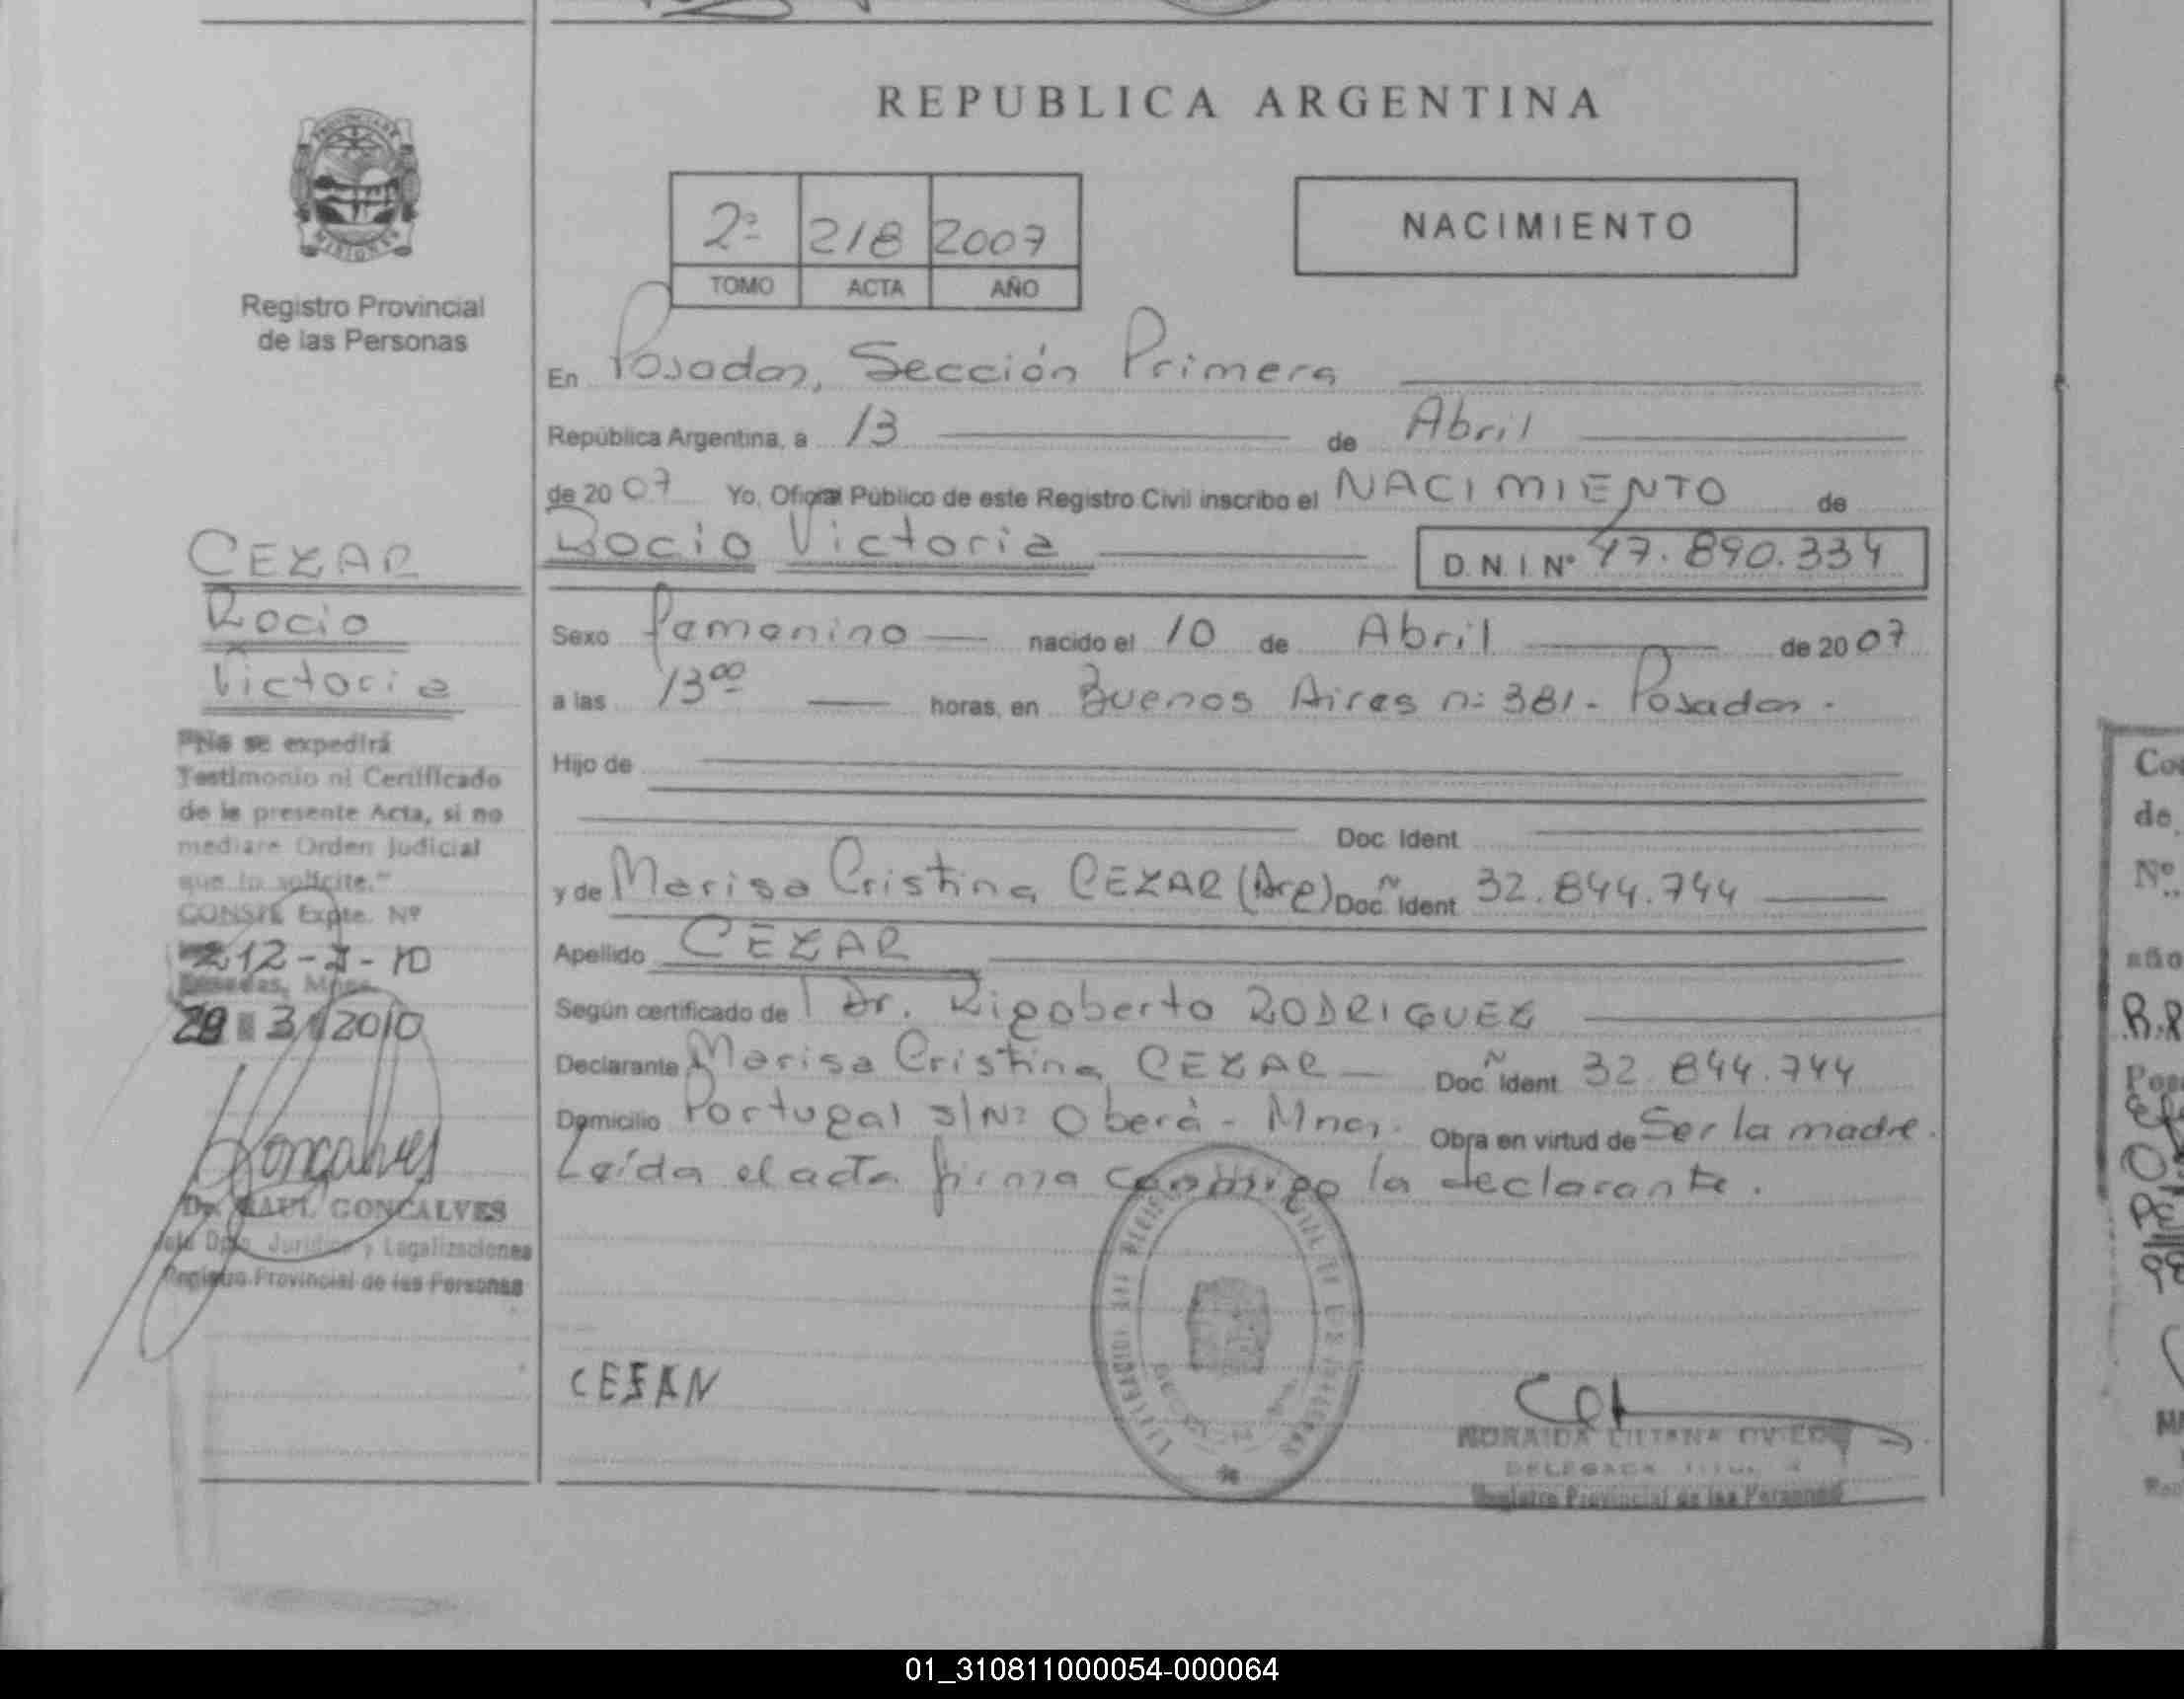 REPUBLICA ARGENTINA
NACIMIENTO
2º 218 2007
TOMO ACTA AÑO
Registro Provincial
de las Personas
En Posadas, Sección Primera
República Argentina, a 13 de Abril
de 2007 Yo, Oficial Público de este Registro Civil inscribo el NACIMIENTO de
Rocio Victoria D.N.I. Nº 47.890.334
Sexo femenino nacido el 10 de Abril de 2007
a las 13⁰⁰ horas, en Buenos Aires nº 381 - Posadas.
Hijo de
Doc. Ident
y de Marisa Cristina CEZAR (Arg) Doc. Ident 32.844.744
Apellido CEZAR
Según certificado de Dr. Rigoberto RODRIGUEZ
Declarante Marisa Cristina CEZAR Doc. Ident 32.844.744
Domicilio Portugal s/Nº Oberá - Mnes. Obra en virtud de Ser la madre.
Leída el acta firma conmigo la declarante.
CEZAR
Rocio
Victoria
"No se expedirá
Testimonio ni Certificado
de la presente Acta, si no
mediare Orden Judicial
que lo solicite."
CONSTE Expte. Nº
Posadas, Mnes.
2010
Goncalves
Dr. RAUL GONCALVES
Jefe Dpto. Jurídico y Legalizaciones
Registro Provincial de las Personas
CESAN
LILIANA OVIEDO
DELEGADA
Registro Provincial de las Personas
Nº
año
01_310811000054-000064